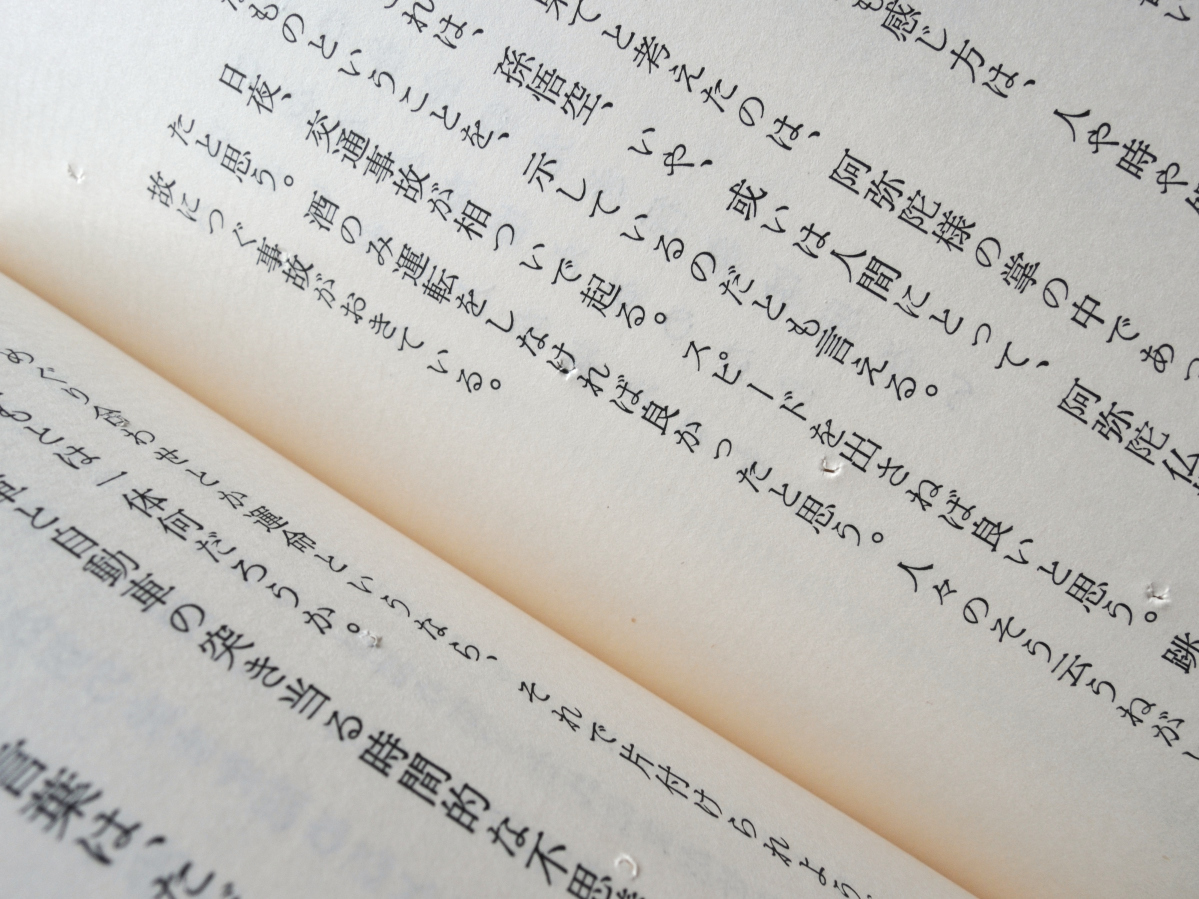 感じ方は、人や時や
果てと考えたのは、阿弥陀様の掌の中であっ
れは、孫悟空、いや、或いは人間にとって、阿弥陀仏
なものということを、示しているのだとも言える。
日夜、交通事故が相ついで起る。スピードを出さねば良いと思う。跳
たと思う。酒のみ運転をしなければ良かったと思う。人々のそう云うねが
故につぐ事故がおきている。
めぐり合わせとか運命というなら、それで片付けられよう
もとは一体何だろうか。
車と自動車の突き当る時間的な不思
言葉は、